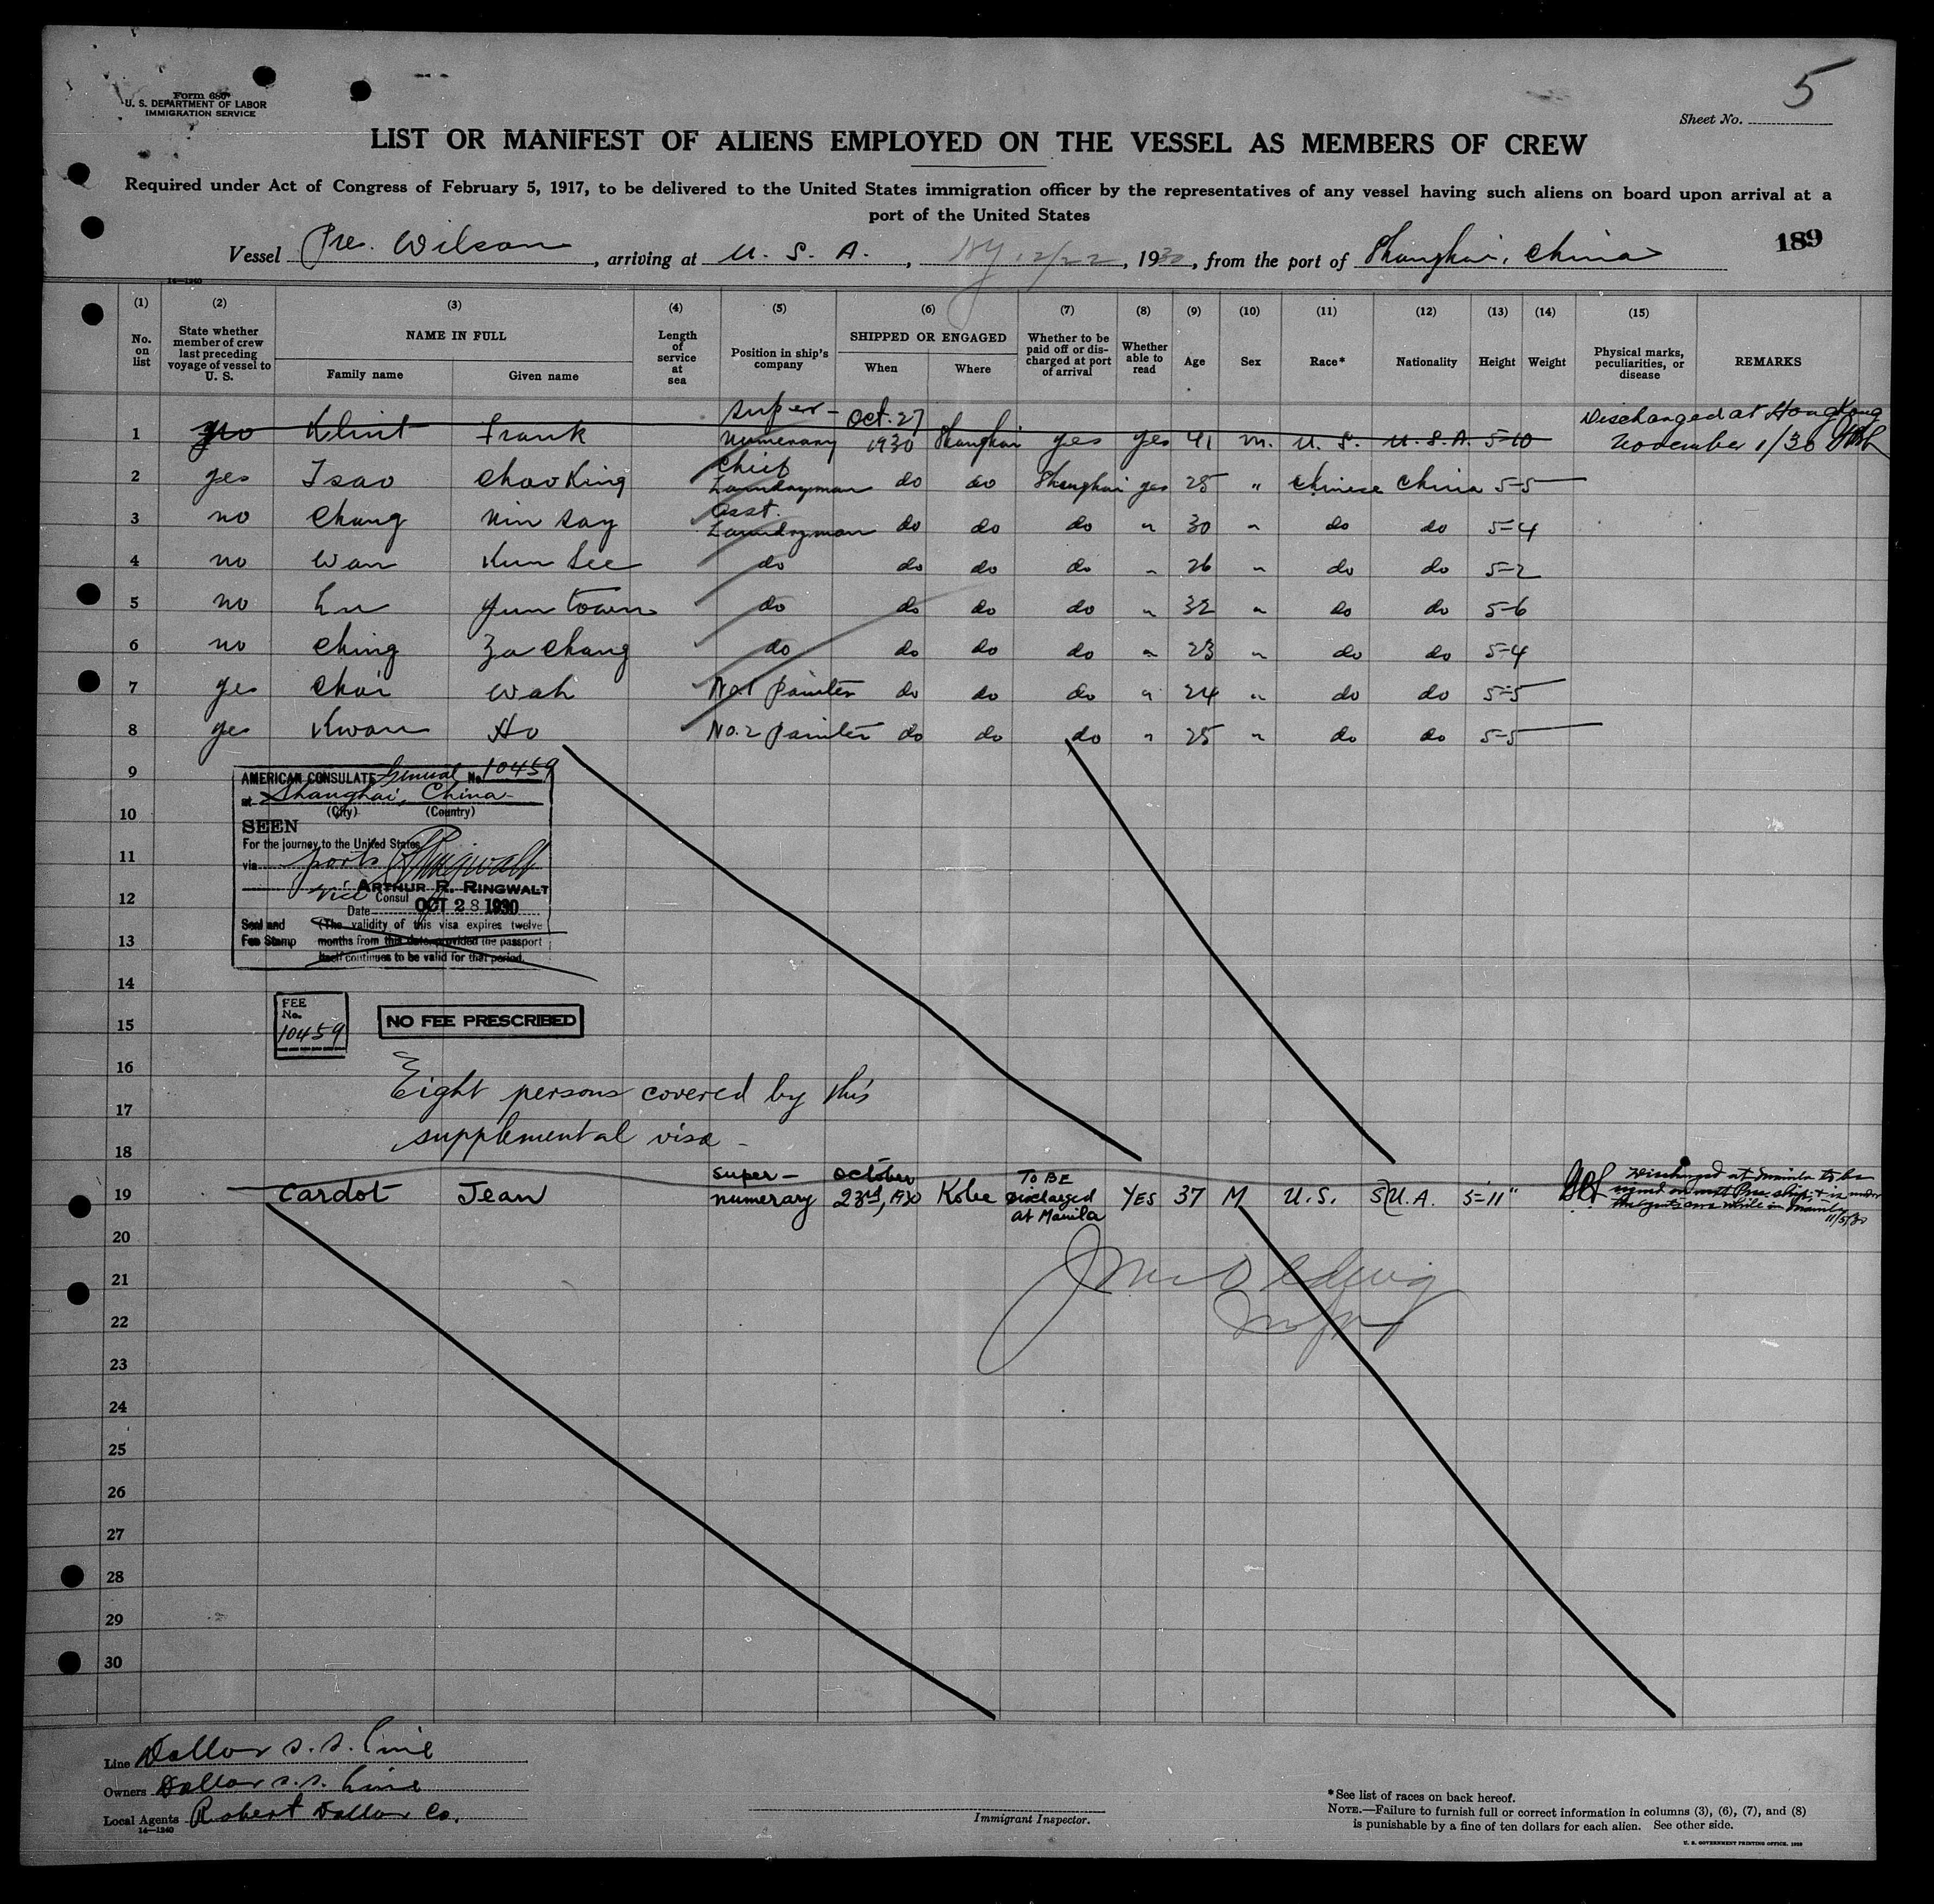 5
Form 680
U. S. DEPARTMENT OF LABOR
IMMIGRATION SERVICE
Sheet No.
LIST OR MANIFEST OF ALIENS EMPLOYED ON THE VESSEL AS MEMBERS OF CREW
Required under Act of Congress of February 5, 1917, to be delivered to the United States immigration officer by the representatives of any vessel having such aliens on board upon arrival at a
port of the United States
189
Vessel Pre. Wilson, arriving at U. S. A., NY 12/22, 1930, from the port of Shanghai, China
14—1240
(1) (2) (3) (4) (5) (6) (7) (8) (9) (10) (11) (12) (13) (14) (15)
No. on list
State whether member of crew last preceding voyage of vessel to U. S.
NAME IN FULL
Family name
Given name
Length of service at sea
Position in ship's company
SHIPPED OR ENGAGED
When
Where
Whether to be paid off or discharged at port of arrival
Whether able to read
Age
Sex
Race*
Nationality
Height
Weight
Physical marks, peculiarities, or disease
REMARKS
1 Klint Frank Super-numerary Oct. 27 1930 Shanghai yes yes 41 m. U. S. U. S. A. 5-10 Discharged at Hong Kong November 1/30
2 yes Tsao Chao King Chief Laundryman do do Shanghai yes 25 " Chinese China 5-5
3 no Chang Nin Say Asst. Laundryman do do do " 30 " do do 5-4
4 no Wan Kun See do do do do " 26 " do do 5-2
5 no Lu Yun Town do do do do " 32 " do do 5-6
6 no Ching Za Chang do do do do " 23 " do do 5-4
7 yes Choi Wah No.1 painter do do do " 24 " do do 5-5
8 yes Kwan Ho No.2 painter do do do " 25 " do do 5-5
9
10
11
12
13
14
15
16
17
18
AMERICAN CONSULATE General No. 10459
at Shanghai, China
(City) (Country)
SEEN
For the journey to the United States
via ports
ARTHUR R. RINGWALT
Vice Consul
Date OCT 28 1930
Seal and Fee Stamp
(The validity of this visa expires twelve
months from this date, provided the passport
itself continues to be valid for that period.
FEE
No.
10459
NO FEE PRESCRIBED
Eight persons covered by this
supplemental visa -
19 Cardot Jean Super-numerary October 23rd, 1930 Kobe TO BE Discharged at Manila YES 37 M U. S. U. S. A. 5-11" Discharged at Manila to be
11/5/30
20
21
22
23
24
25
26
27
28
29
30
Line Dollar S. S. Line
Owners Dollar S. S. Line
Local Agents Robert Dollar Co.
14—1240
Immigrant Inspector.
*See list of races on back hereof.
NOTE.—Failure to furnish full or correct information in columns (3), (6), (7), and (8)
is punishable by a fine of ten dollars for each alien. See other side.
U. S. GOVERNMENT PRINTING OFFICE